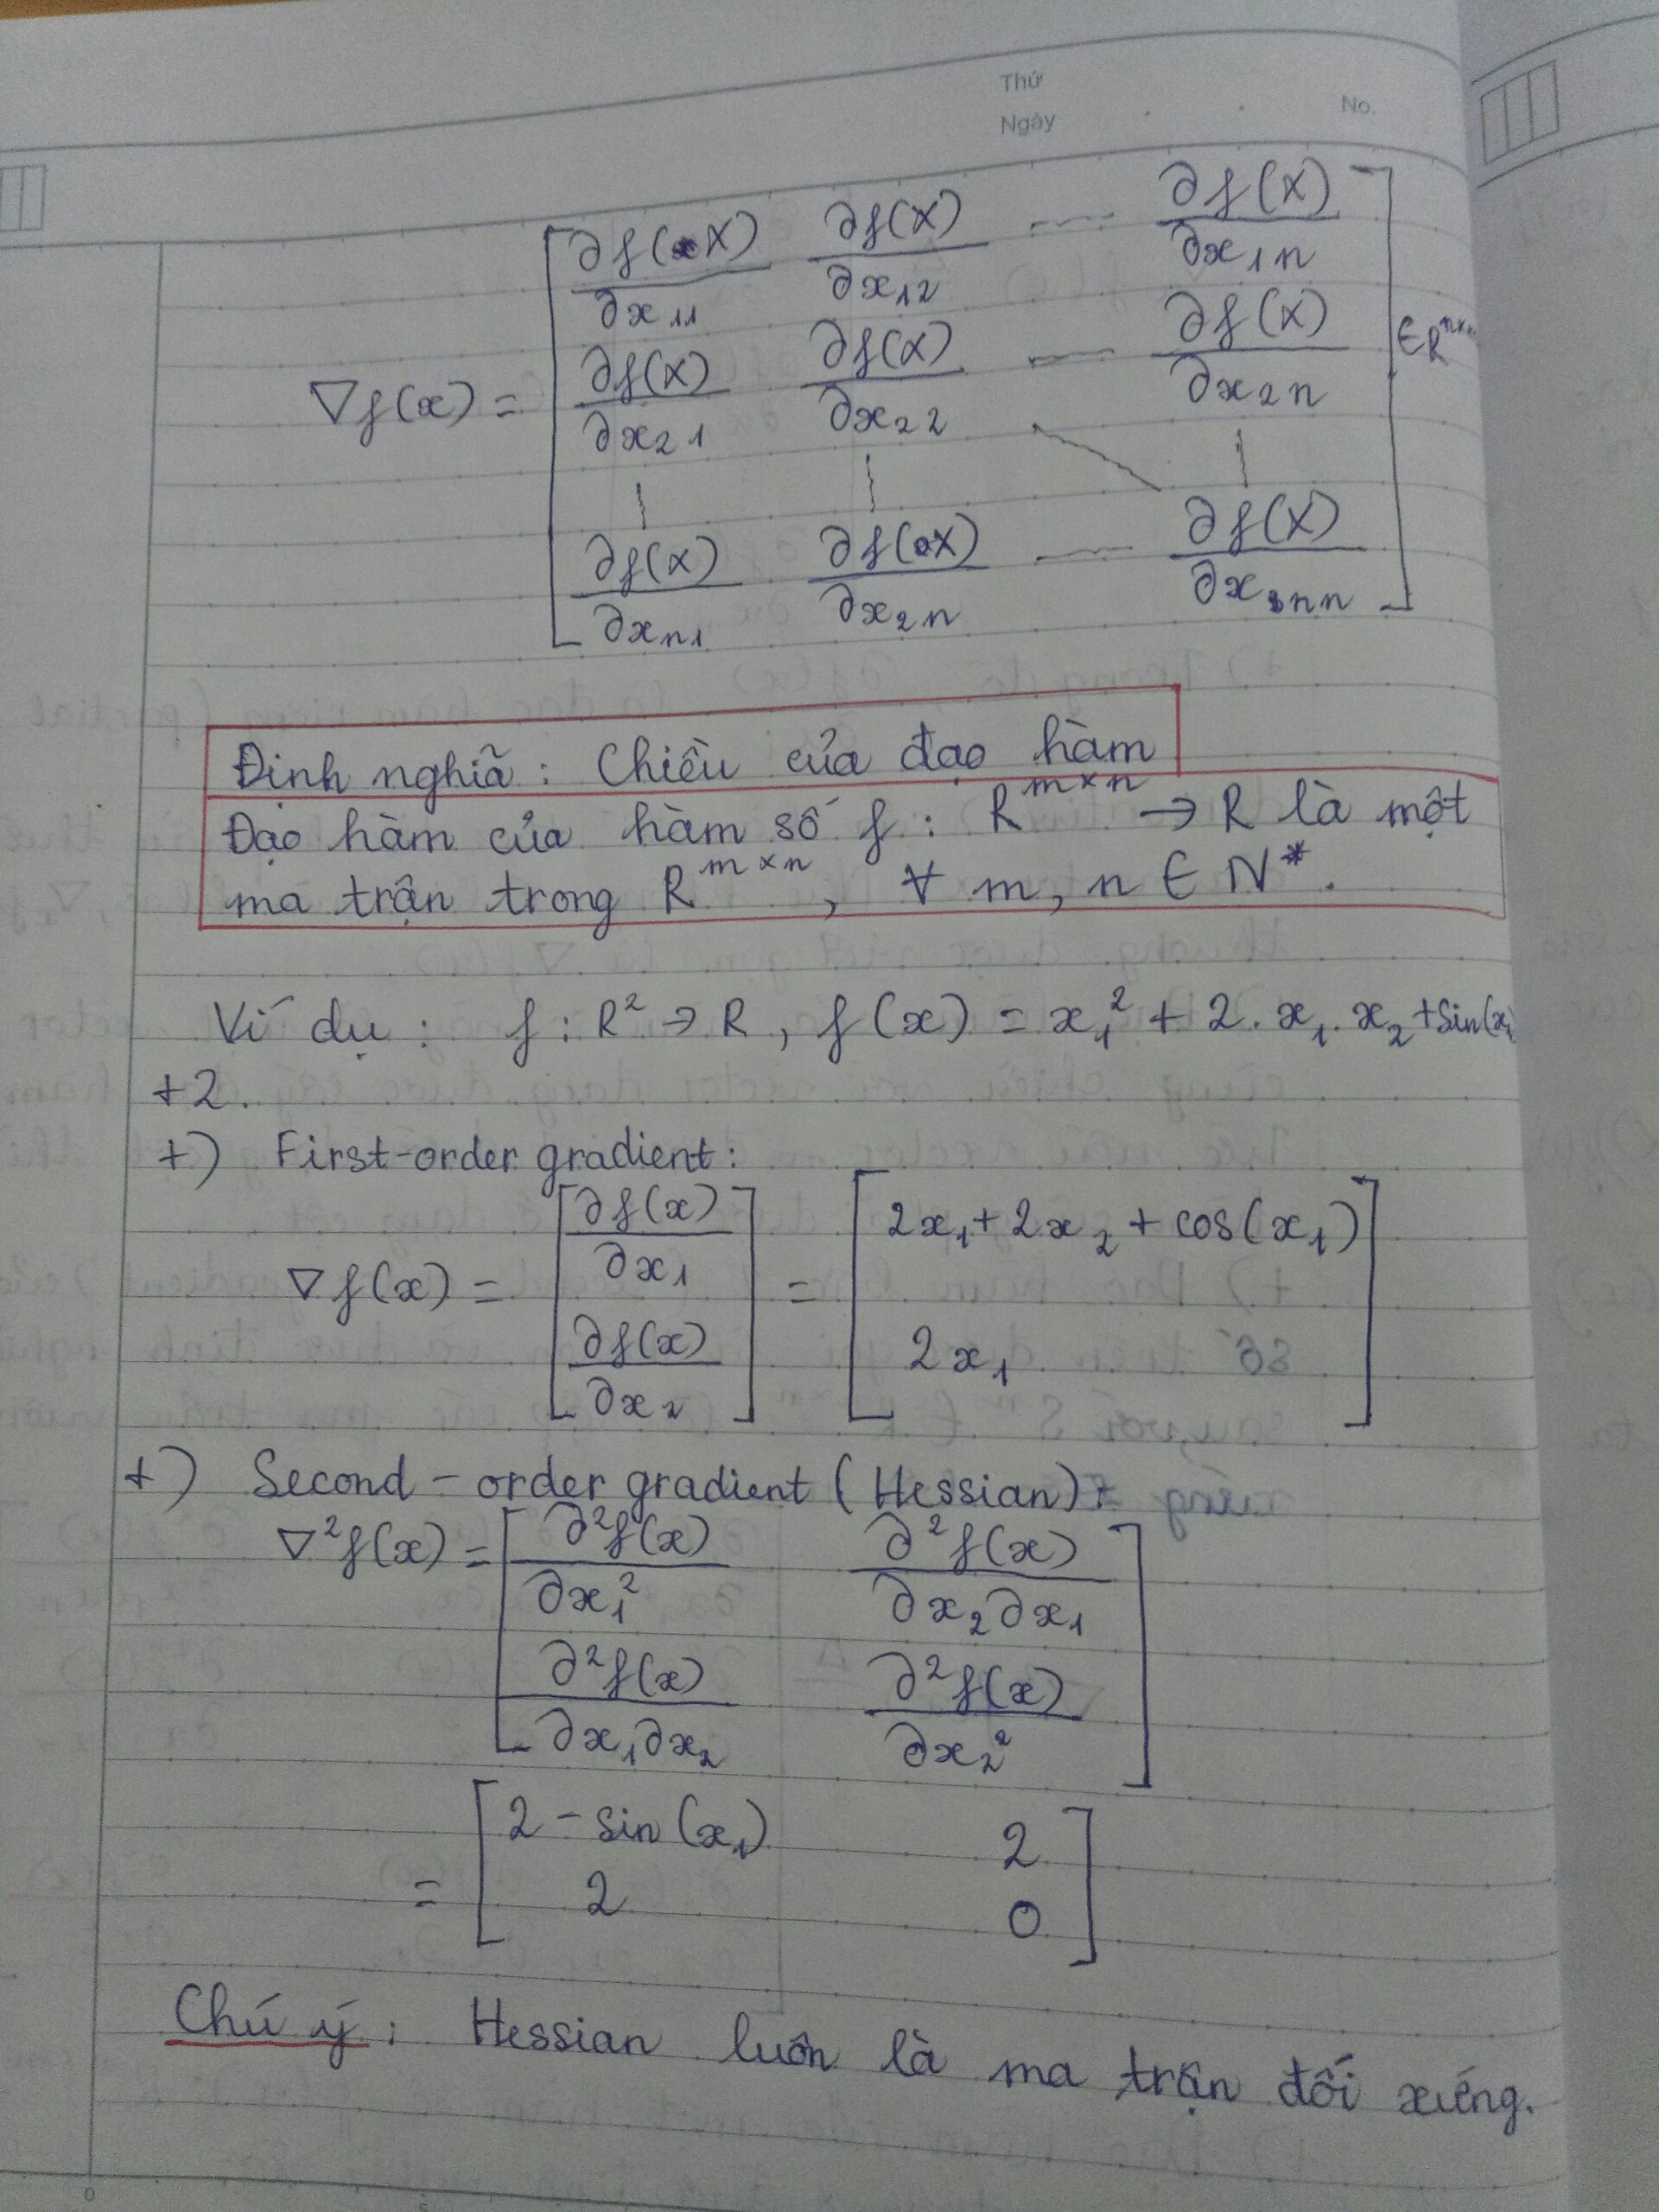 Thứ
Ngày
No.
∂f(X)/∂x₁₁ ∂f(X)/∂x₁₂ --- ∂f(X)/∂x₁n
∇f(x) = ∂f(X)/∂x₂₁ ∂f(X)/∂x₂₂ --- ∂f(X)/∂x₂n ∈ R
∂f(X)/∂xn₁ ∂f(X)/∂x₂n --- ∂f(X)/∂xnn
Định nghĩã : Chiều của đạo hàm
Đạo hàm của hàm số f : R^(m×n) → R là một
ma trận trong R^(m×n), ∀ m, n ∈ N*.
Ví dụ : f : R² → R , f(x) = x₁² + 2. x₁. x₂ + sin(x₁
+2.
+) First-order gradient :
∇f(x) = [∂f(x)/∂x₁ ; ∂f(x)/∂x₂] = [2x₁ + 2x₂ + cos(x₁) ; 2x₁]
+) Second - order gradient (Hessian) :
∇²f(x) = [∂²f(x)/∂x₁² ∂²f(x)/∂x₂∂x₁
∂²f(x)/∂x₁∂x₂ ∂²f(x)/∂x₂²]
= [2 - sin(x₁) 2
2 0]
Chú ý : Hessian luôn là ma trận đối xứng.
0
5